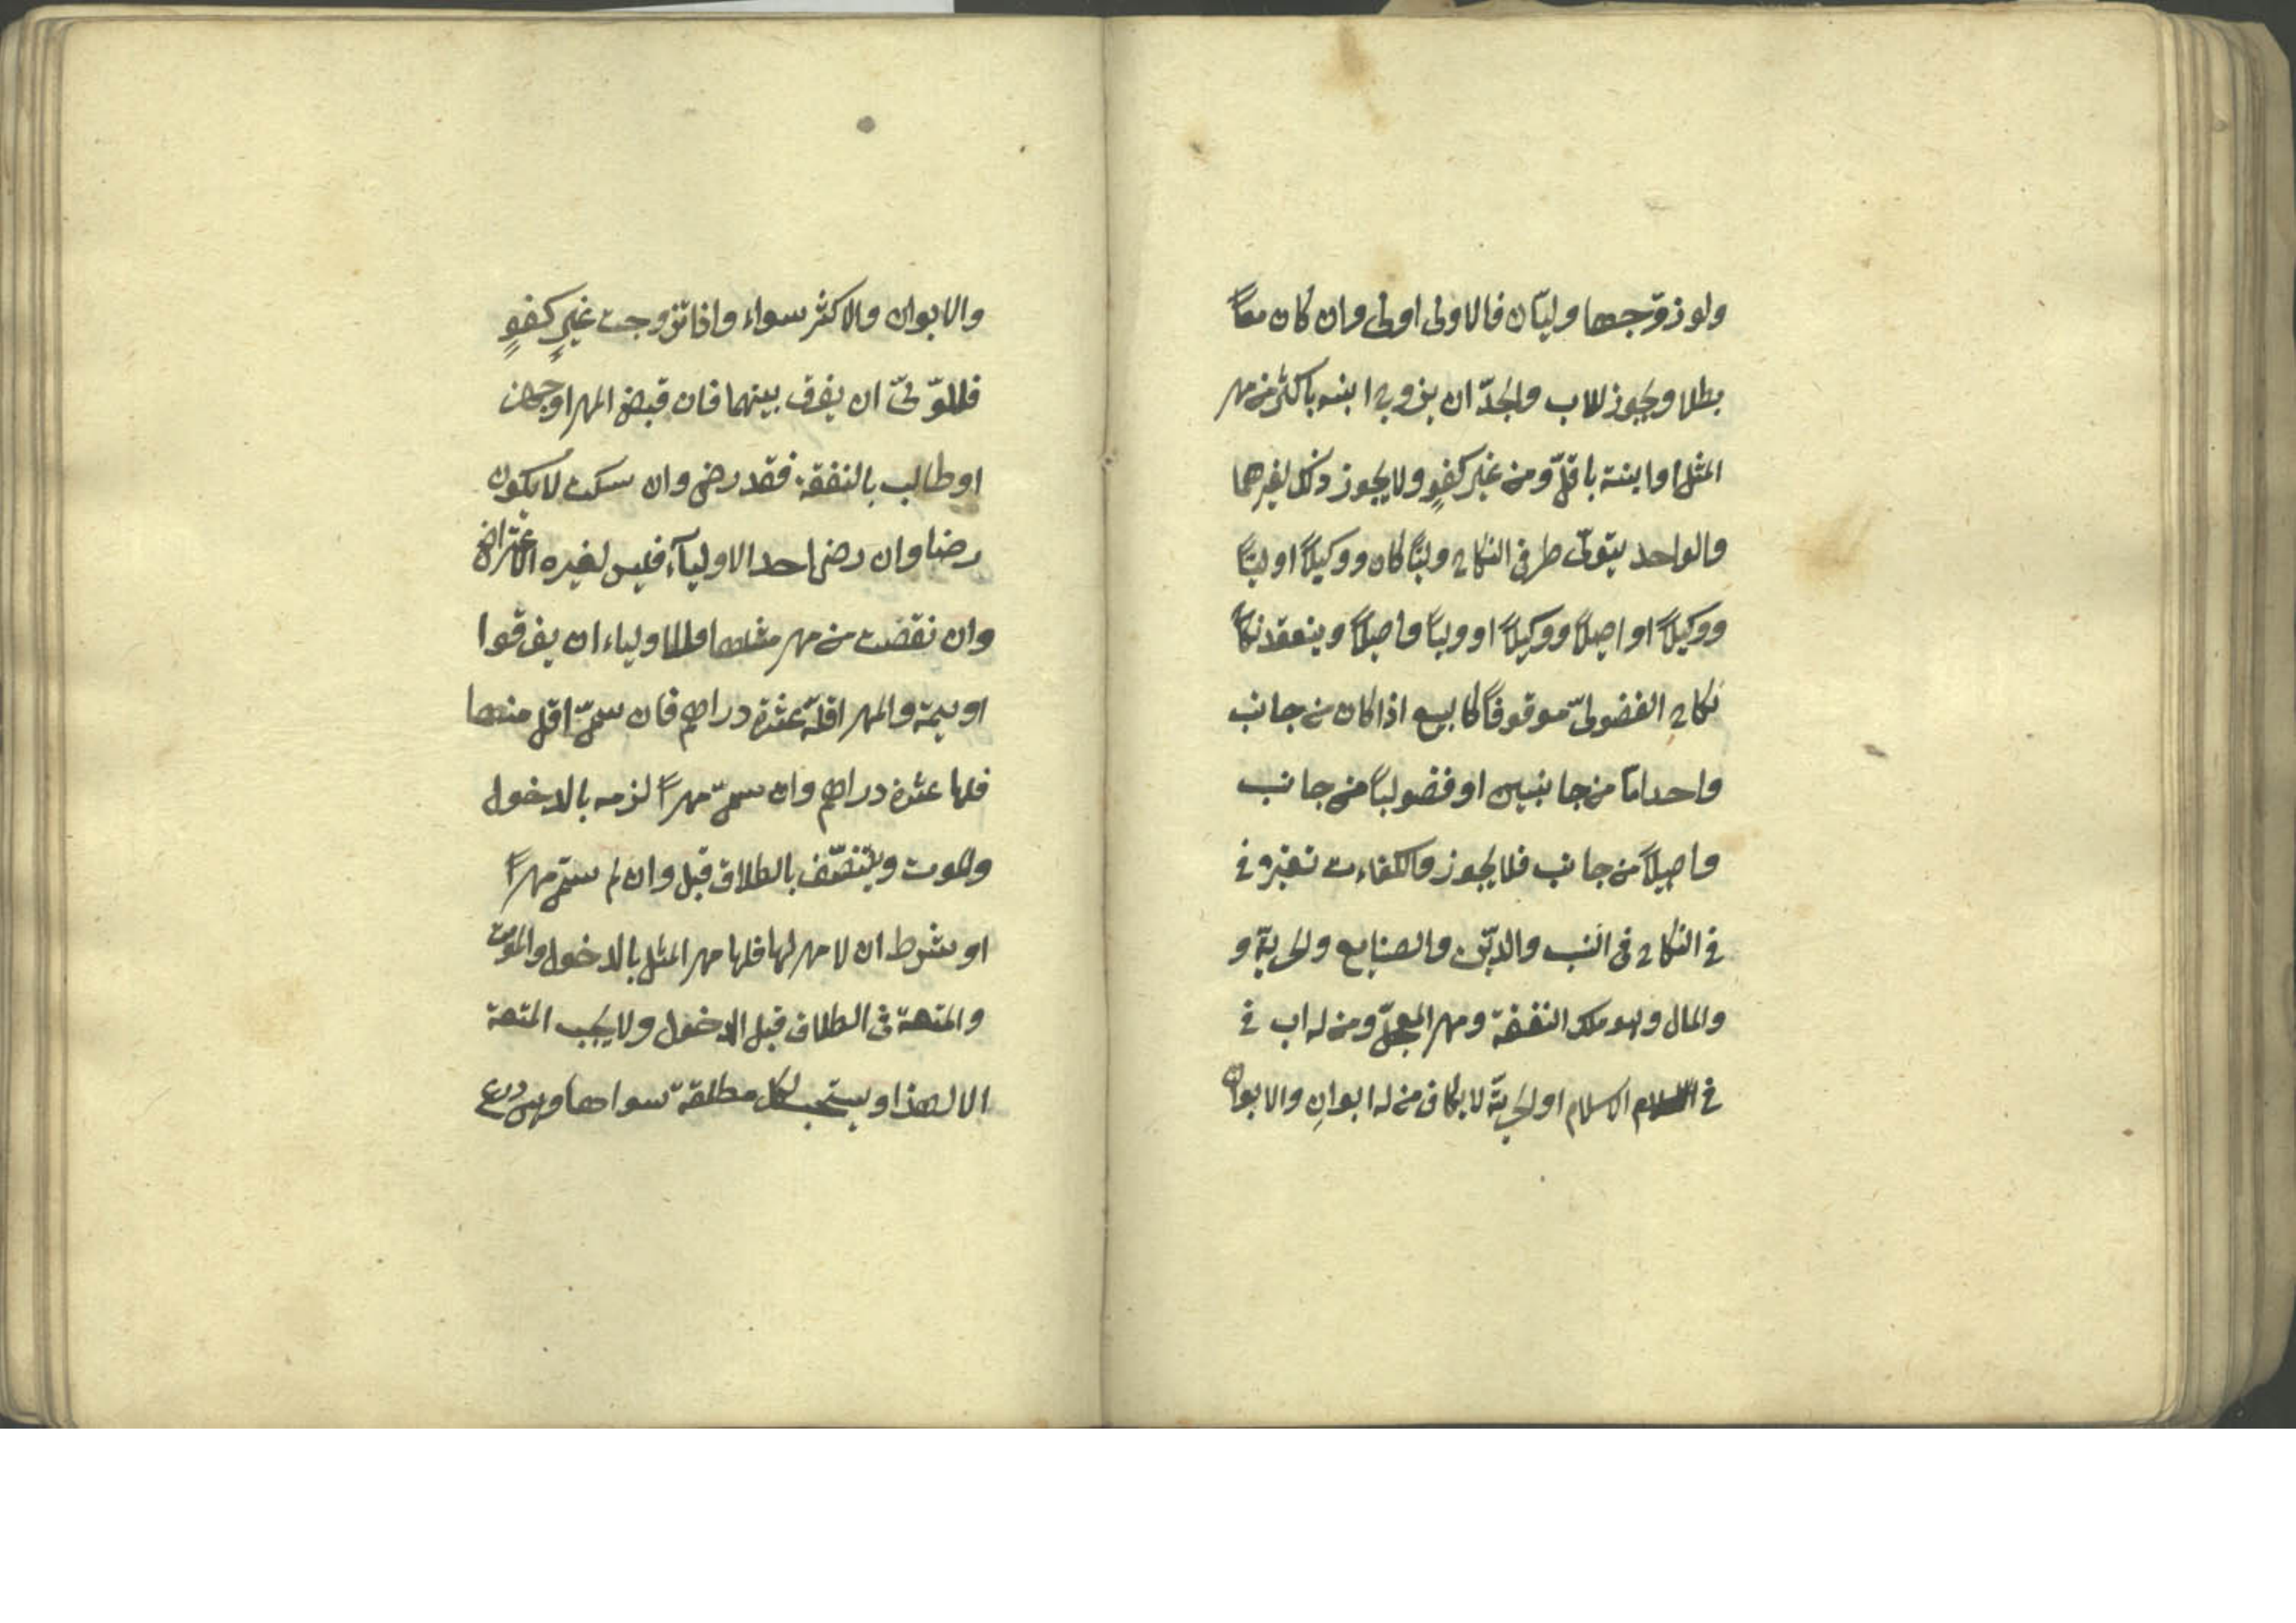 ولو زوّجها وليّان فالاولى اولى وان كان معاً
بطلا ويجوز للاب والجدّ ان يزوج ابنه باكثر من مهر
المثل او ابنته باقلّ ومن غير كفوٍ ولا يجوز ذلك لغيرهما
والواحد يتولّى طرفى النكاح وليّاً كان ووكيلاً او وليّاً
ووكيلاً او اصيلاً ووكيلاً او ولياً واصيلاً وينعقد نكاح
نكاح الفضولىّ موقوفاً كالبيع اذا كان من جانب
واحد امّا من جانبين او فضولياً من جانب
واصيلاً من جانب فلا يجوز والكفاءت تعتبر فى
فى النكاح فى النسب والديّن والصنايع والحريّة و
والمال وهو ملك النفقة ومهر المعجلّ ومن له اب فى
فى الاسلام او الحريّة لا يكافى من له ابوانِ والابوان
والابوان والاكثر سواء واذا تزوجت غيرِ كفوٍ
فللوّلىّ ان يفرق بينهما فان قبض المهر او جهز
او طالب بالنفقة فقد رضى وان سكت لا يكون
رضا وان رضى احد الاوليآء فليس لغيره الاعتراض
وان نقضت من مهر مثلها فللاولياء ان يفرقوا
او يتمة والمهر اقلّه عشرة دراهم فان سمىّ اقل منها
فلها عشرة دراهم وان سمىّ مهراً لزمه بالدخول
والموت ويتنصّف بالطلاق قبل وان لم يسمّ مهراً
او شرط ان لا مهر لها فلها مهر المثل بالدخول والموت
والمتعة فى الطلاق قبل الدخول ولا يجب المتعة
الا لهذا ويستحب لكل مطلقة سواها وهى درع